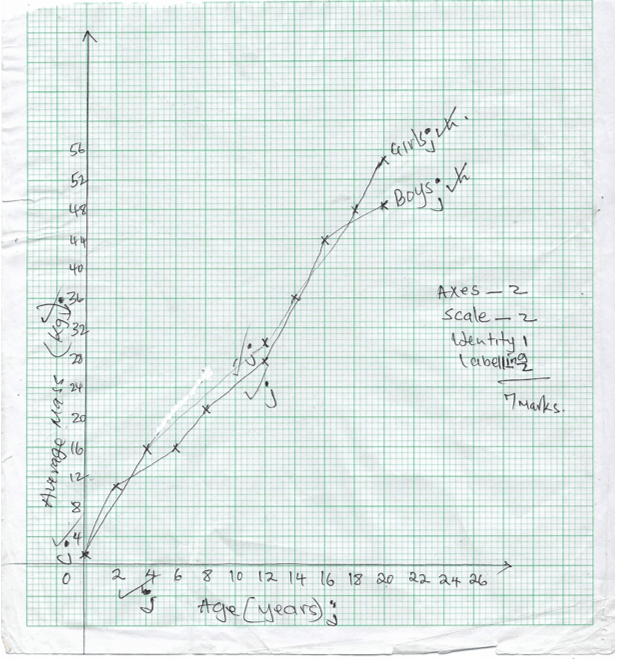 56
52
48
44
40
36
32
28
24
20
16
12
8
4
Average Mass (Kg)
Girls
Boys
Axes — 2
Scale — 2
Identity 1
Labelling 2
7 Marks.
0 2 4 6 8 10 12 14 16 18 20 22 24 26
Age (years)